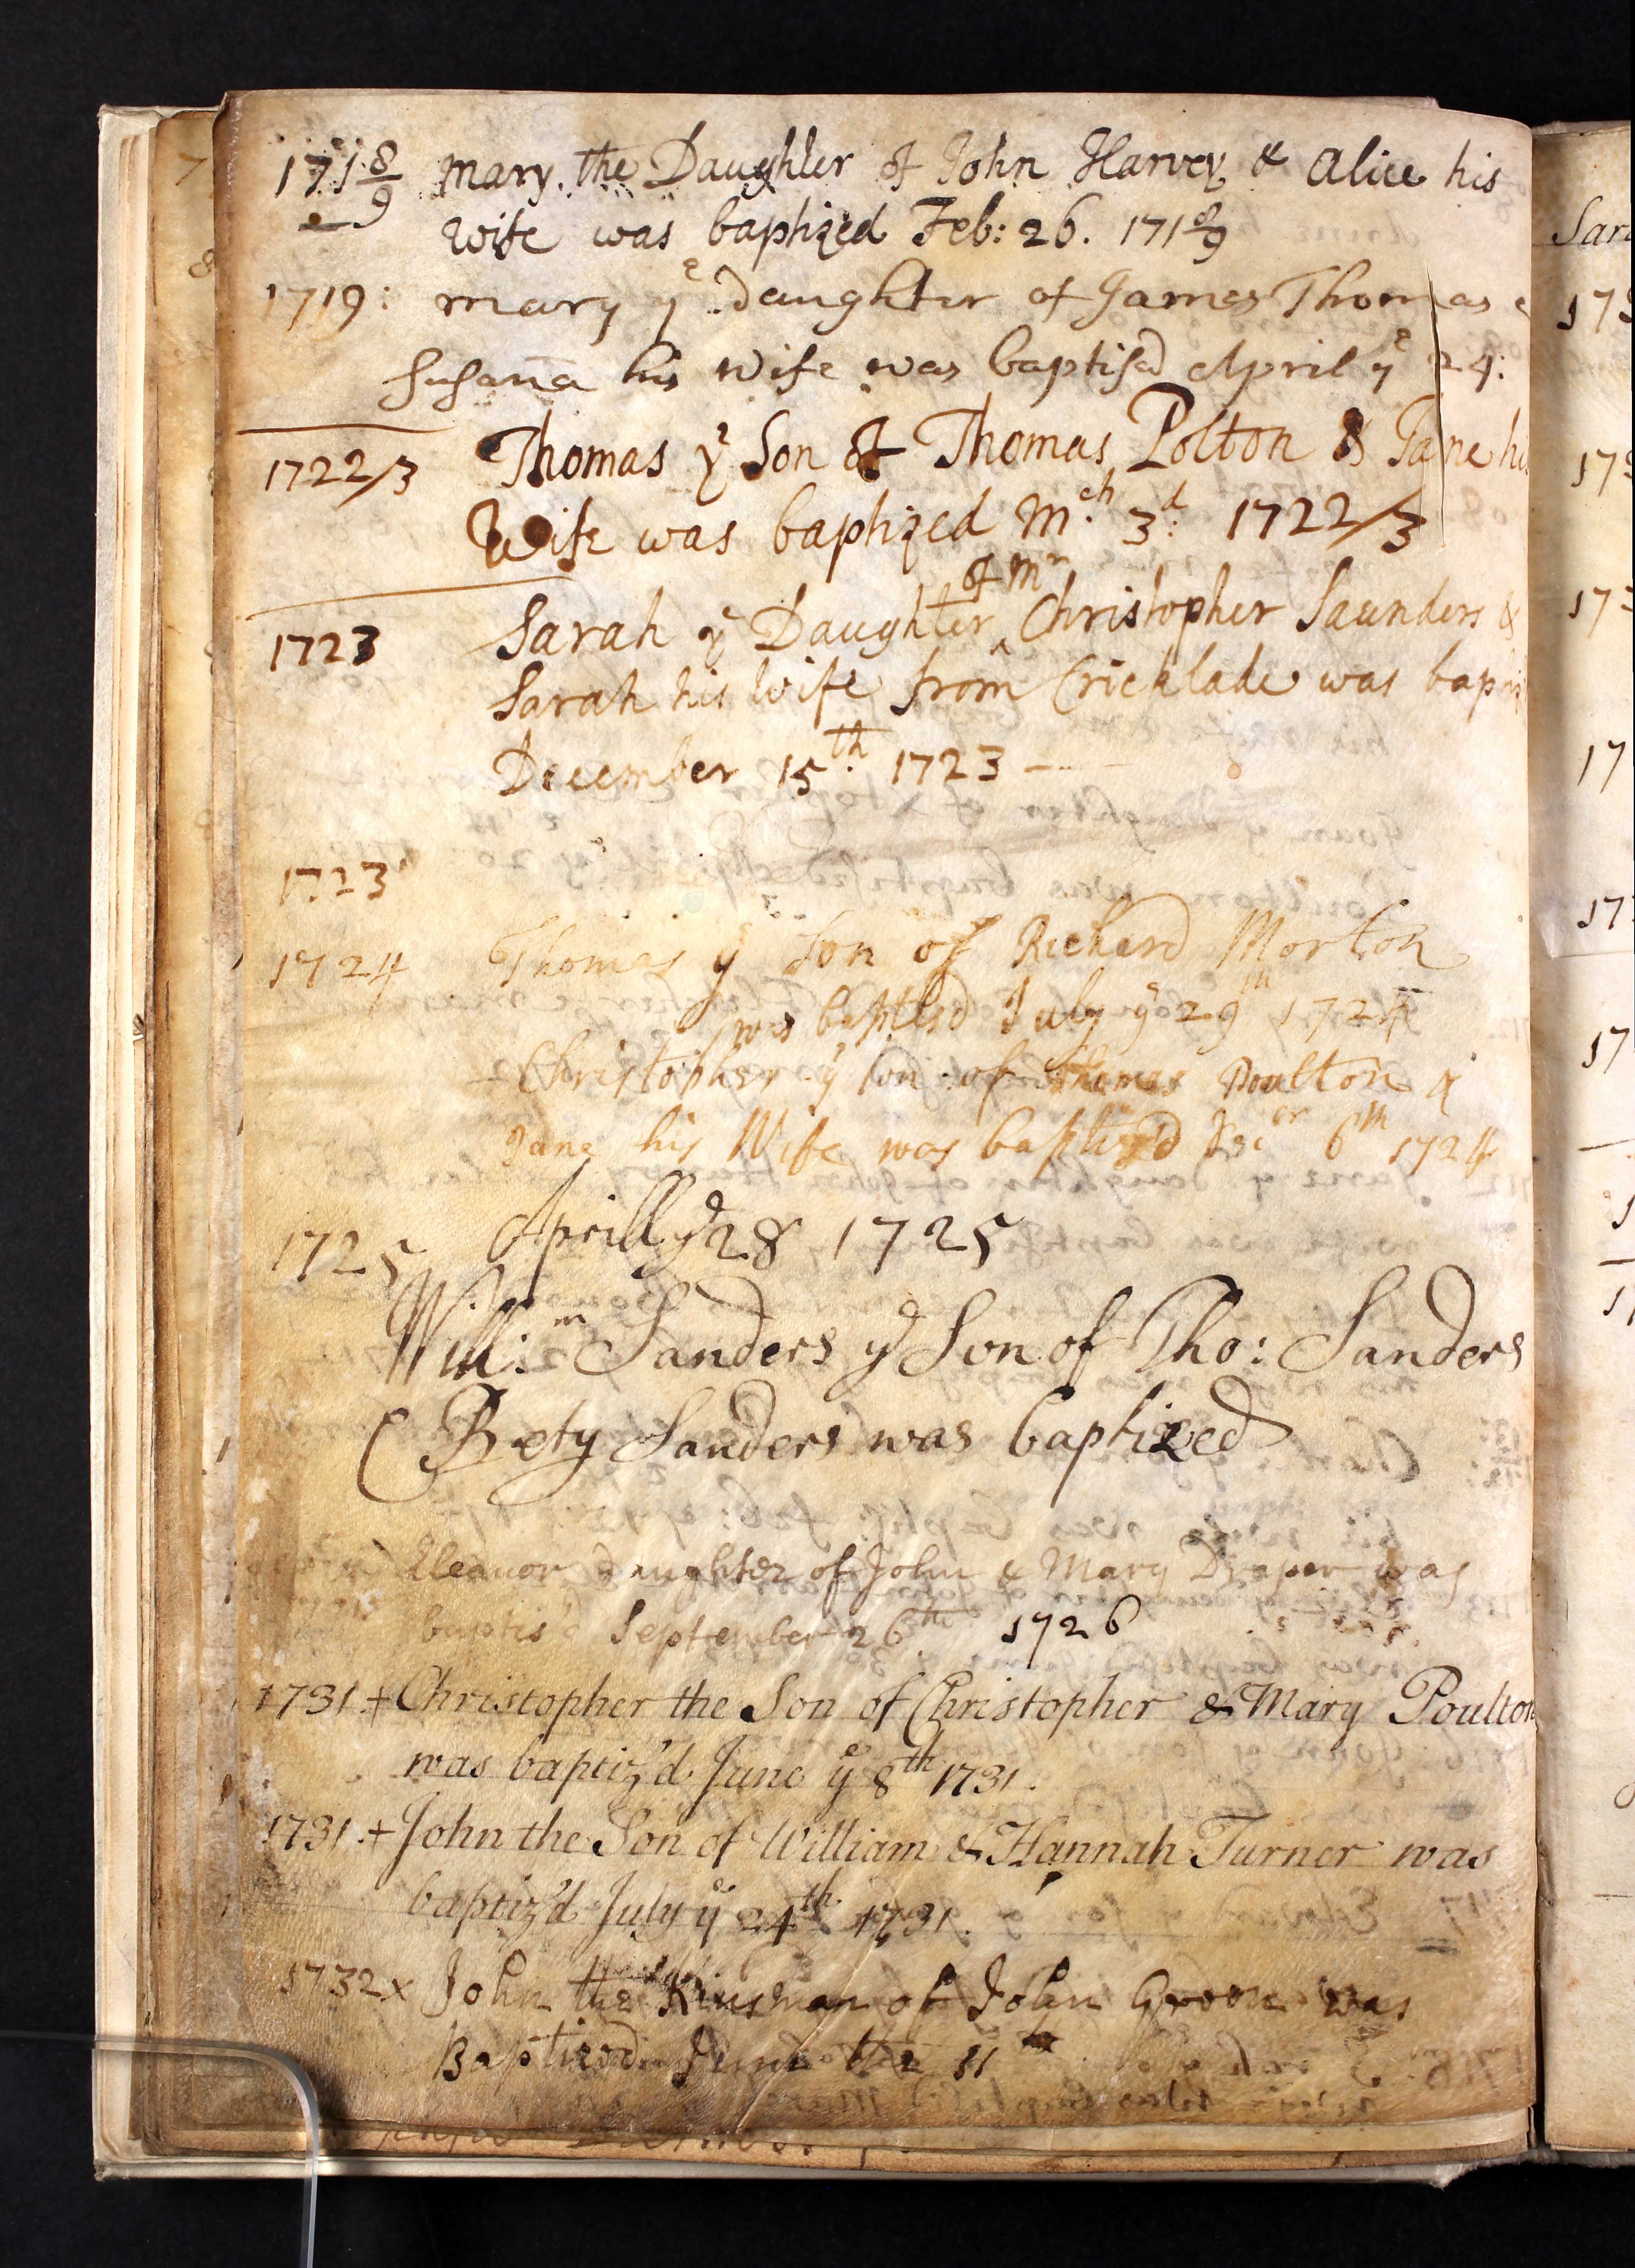 171 8/9 Mary the Daughter of John Harvey & Alice his
Wife was baptized Feb: 26. 171 8/9
1719: Mary yͤ Daughter of James Thomas
Susan̄a his Wife was baptisd April yͤ 24:
1722/3 Thomas yͤ Son of Thomas Polton & Jane his
Wife was baptized M.ch 3d: 1722/3
of Mr
1723 Sarah yͤ Daughter ^ Christopher Saunders &
Sarah his Wife from Cricklade was bap
December 15th 1723 —
1723
1724 Thomas yͤ Son of Richard Morton
was baptisd July yͤ 29th 1724
Christopher yͤ son of Thomas Poulton &
Jane his Wife was baptizd Decer 6th 1724
1725 Aprill yͤ 28 1725
Will:m Sanders yͤ Son of Tho: Sanders
& Bety Sanders was baptized
Eleanor Daughter of John & Mary Draper was
baptis'd September 26th 1726
1731.+ Christopher the Son of Christopher & Mary Poulton
was baptiz'd June yͤ 8th 1731.
1731.+ John the Son of William & Hannah Turner was
baptiz'd July yͤ 24th 1731.
1732 x John the Kinsman of John Groom was
Baptized June the 11